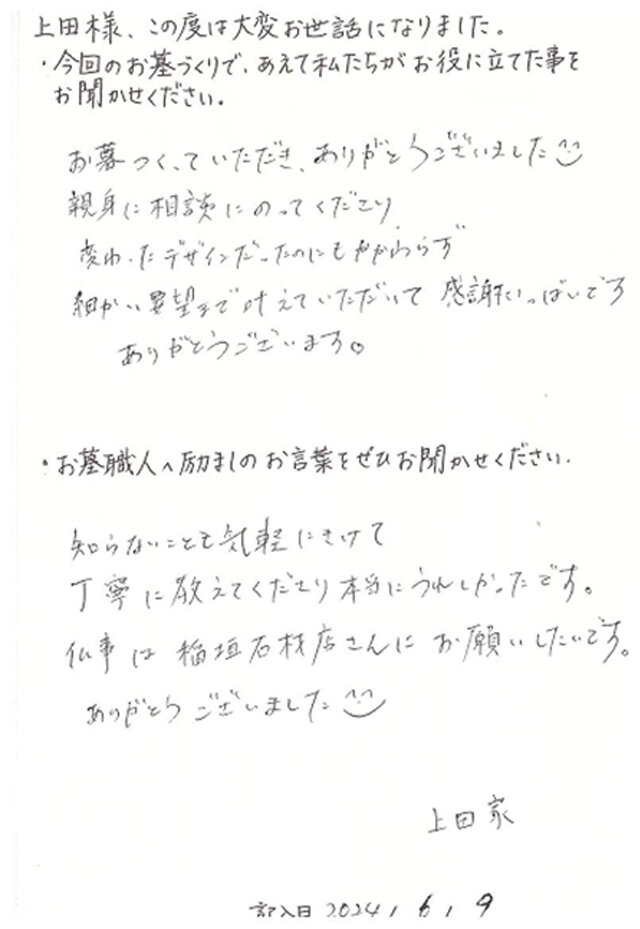 上田様、この度は大変お世話になりました。
・今回のお墓づくりで、あえて私たちがお役に立てた事を
お聞かせください。
お墓つくっていただき、ありがとうございました
親身に相談にのってくださり
変わったデザインだったのにもかかわらず
細かい要望まで叶えていただいて 感謝でいっぱいです
ありがとうございます。
・お墓職人へ励ましのお言葉をぜひお聞かせください.
知らないことも気軽にきけて
丁寧に教えてくださり本当にうれしかったです。
仏事は稲垣石材店さんにお願いしたいです。
ありがとうございました
上田家
記入日 2024, 6, 9